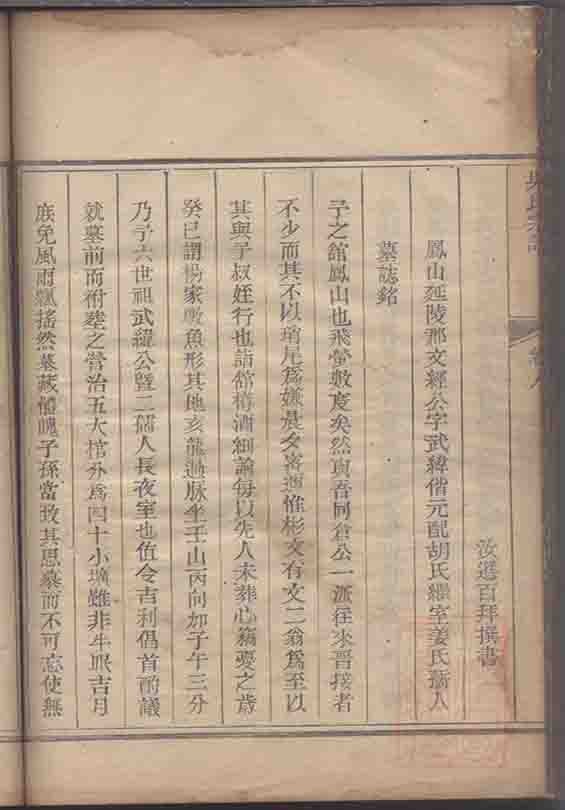 吳氏宗譜
卷八
汝選百拜撰書
鳳山延陵郡文經公字武緯偕元配胡氏繼室姜氏孺人
墓誌銘
予之舘鳳山也飛螢數度矣然與吾同倉公一派往來晋接者
不少而其不以瑣尾為嫌晨夕客遊惟彬文有文二翁為至以
其與予叔姪行也詣舘樽酒細論每以先人未葬心竊憂之歲
癸巳謂楊家墩魚形其地亥龍過脉坐壬山丙向加子午三分
乃予六世祖武緯公暨二孺人長夜室也值令吉利倡首酌議
就墓前而祔塟之營治五大棺分為四十小壙雖非牛眠吉月
庶免風雨飄搖然墓藏體魄子孫當致其思慕而不可忘使無